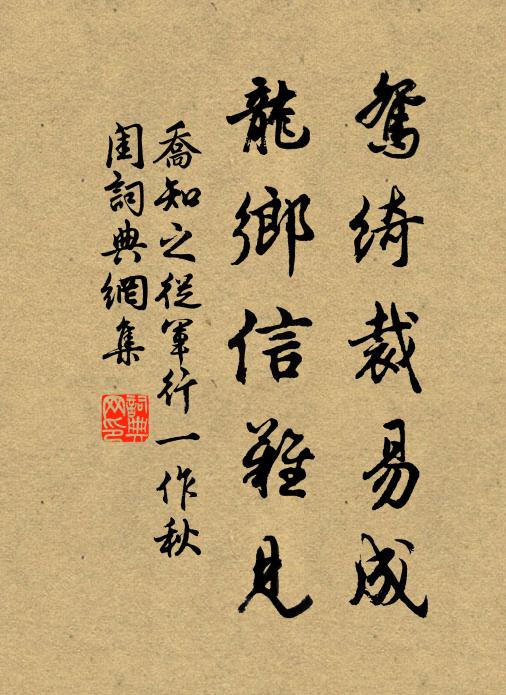 鴛綺裁易成
龍鄉信難見
喬知之從軍行一作秋
閨詞典網集
詞典
网印